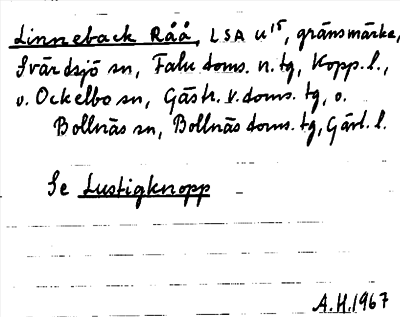 Linneback Råå, LSA U15, gränsmärke,
Svärdsjö sn, Falu doms. n. tg, Kopp. l.,
o. Ockelbo sn, Gästr. v. doms. tg, o.
Bollnäs sn, Bollnäs doms. tg, Gävl. l.
Se Lustigknopp
A.H. 1967